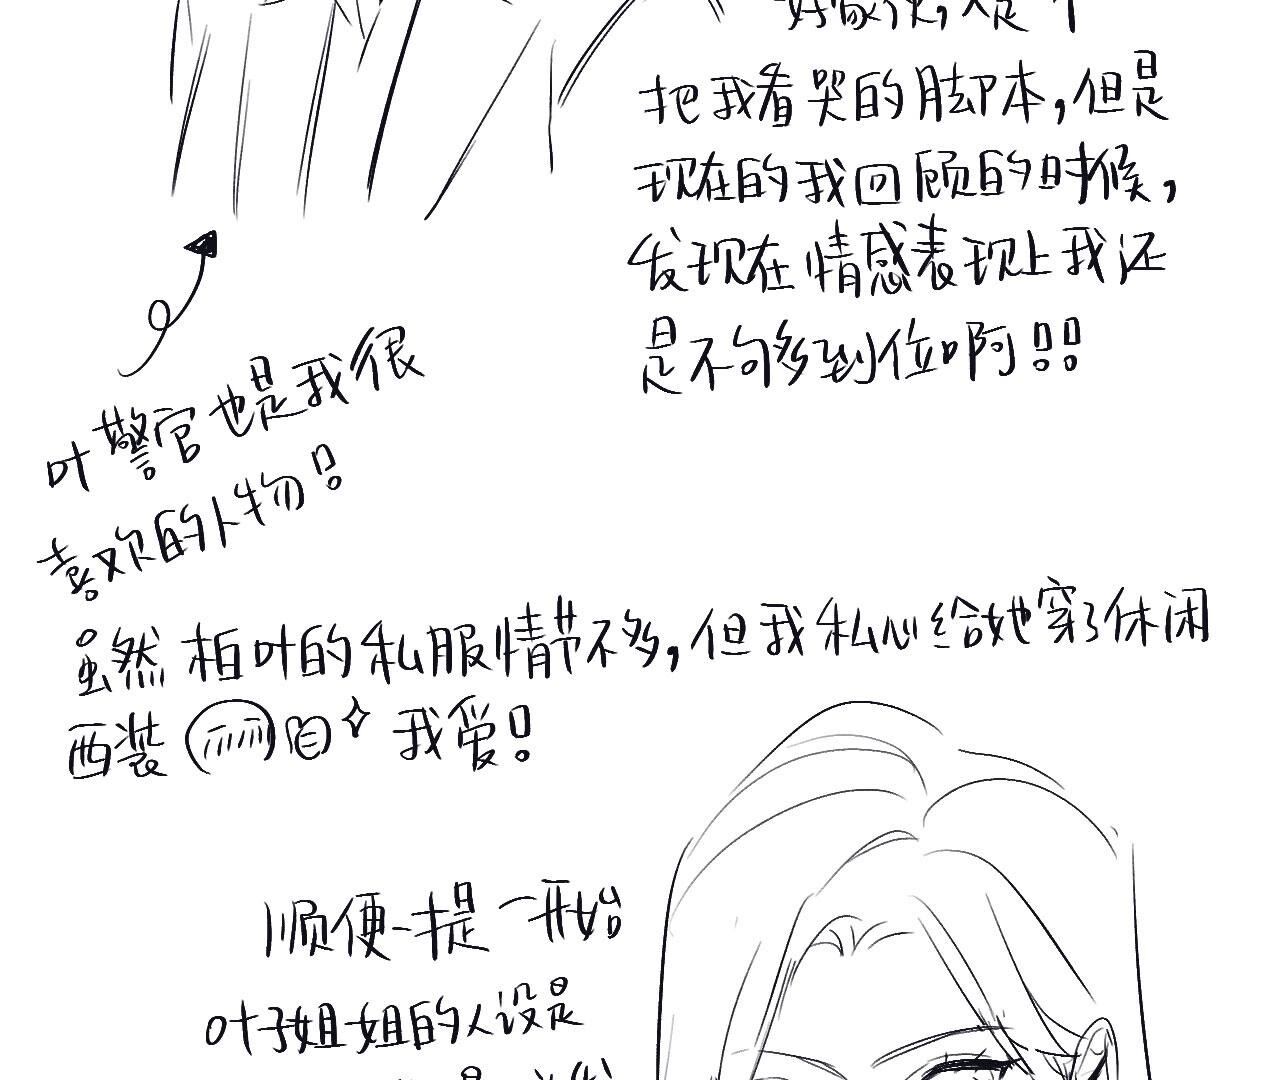 好家伙，又是个
把我看哭的脚本，但是
现在的我回顾的时候，
发现在情感表现上我还
是不够到位啊！！
叶警官也是我很
喜欢的人物！
虽然柏叶的私服情节不多，但我私心给她穿了休闲
西装 我爱！
顺便一提一开始
叶子姐姐的人设是